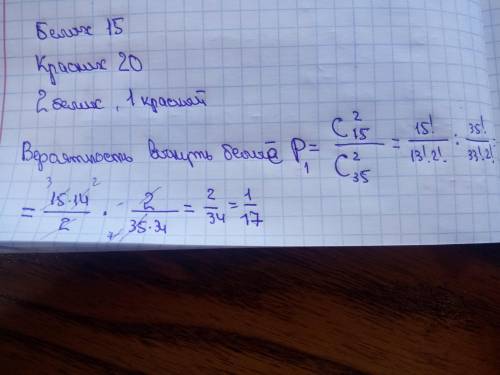 Белих 15
Красних 20
2 белих, 1 красной
Вероятность витянуть белие P₁ = C²₁₅ / C²₃₅ = 15! / 13!·2! : 35! / 33!·2! =
= 15·14 / 2 · 2 / 35·34 = 2 / 34 = 1 / 17